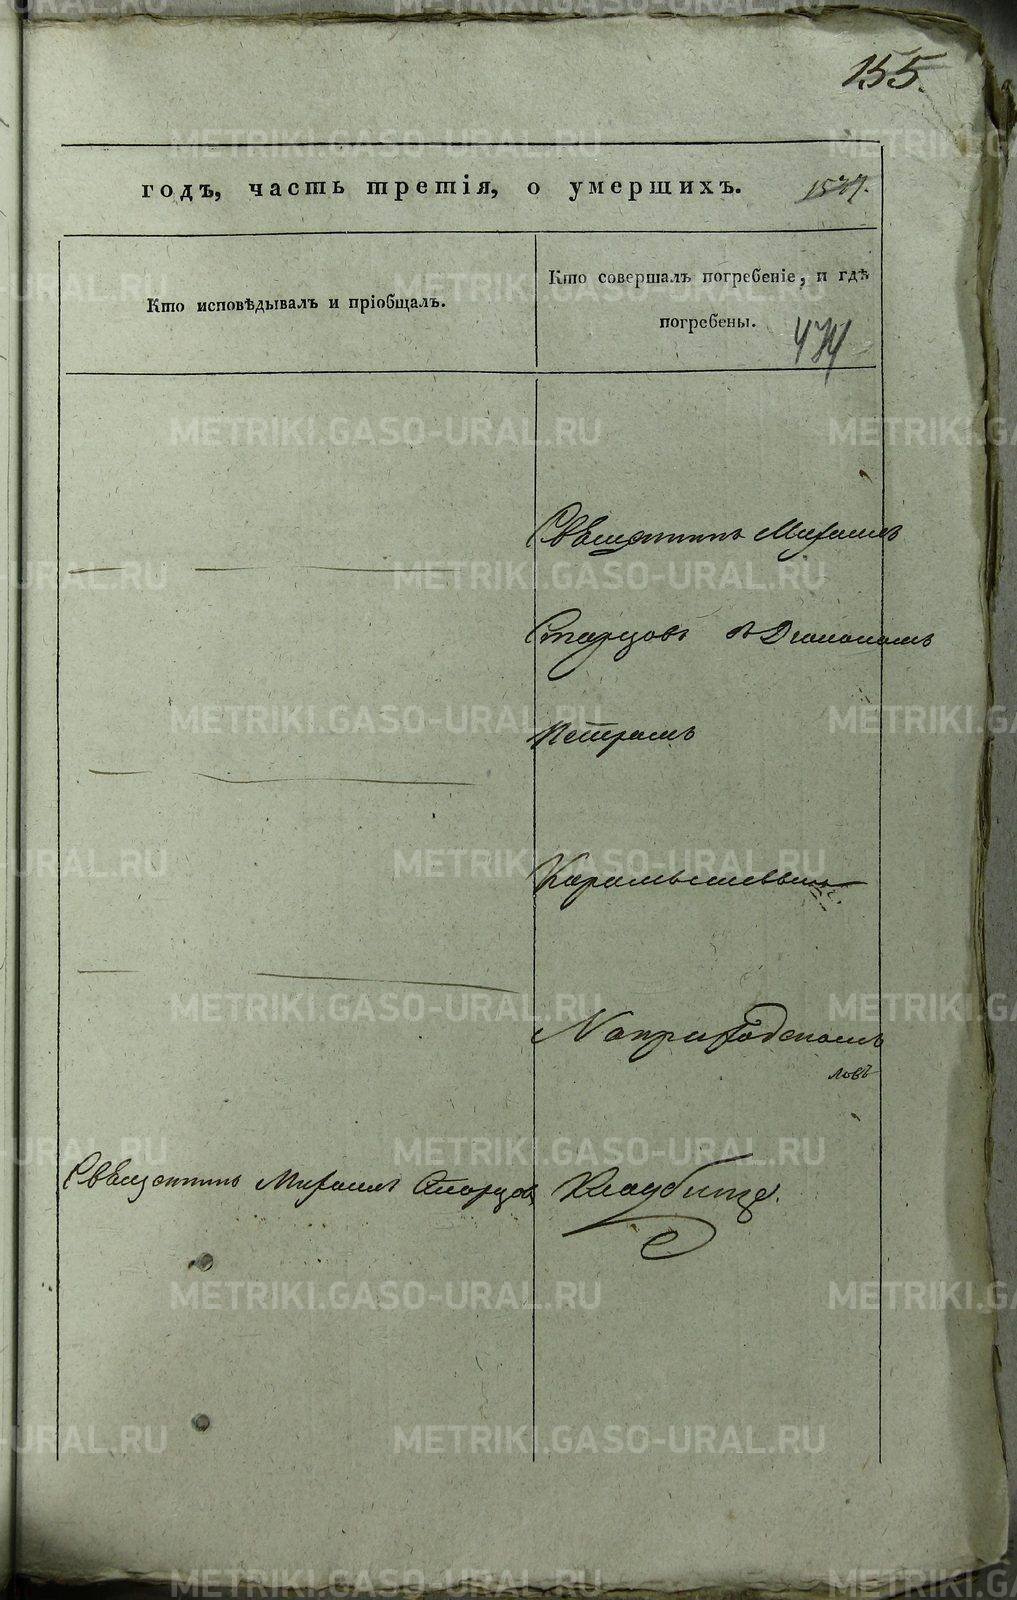 155.
годъ, часть третія, о умершихъ.
Кто исповѣдывалъ и пріобщалъ.
Кто совершалъ погребеніе, и гдѣ
погребены.
474
Священникъ Михаилъ
Старцовъ съ Діакономъ
Петромъ
Карамышевым
На приходскомъ
Священникъ Михаилъ Старцов
Кладбище.
METRIKI.GASO-URAL.RU